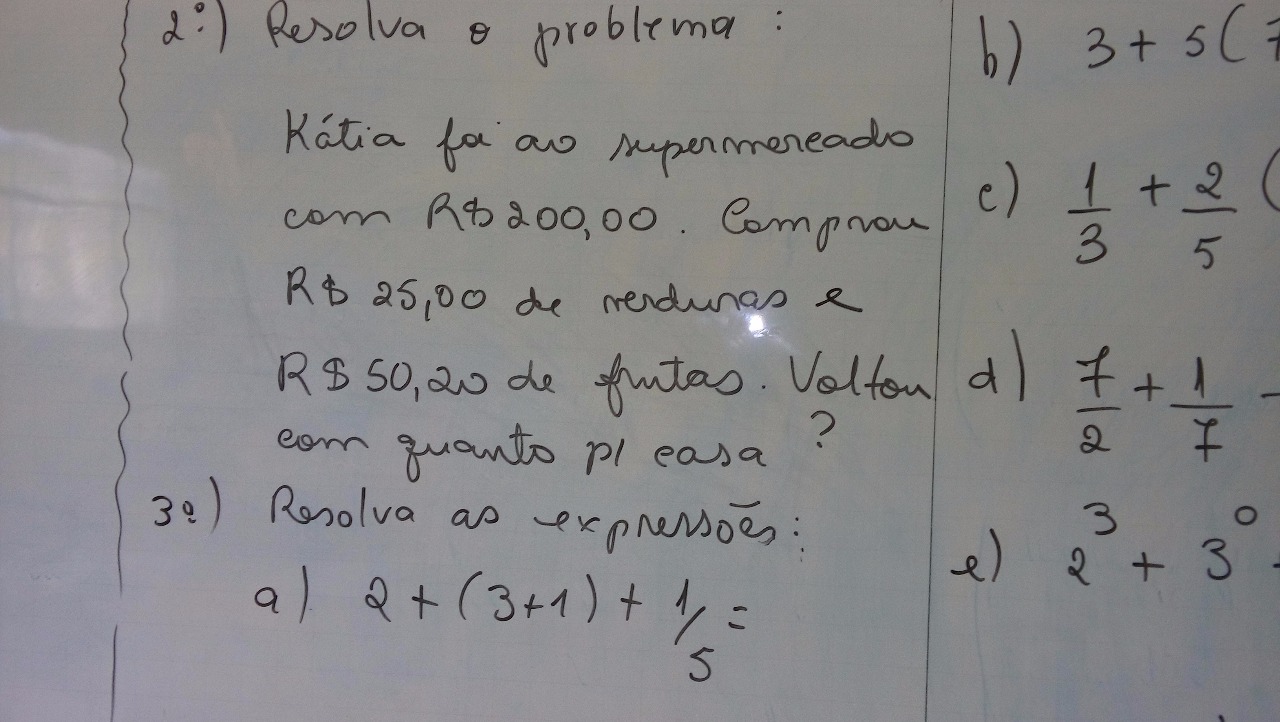 2º) Resolva o problema :
Kátia foi ao supermercado
com R$ 200,00. Comprou
R$ 25,00 de verduras e
R$ 50,20 de frutas. Voltou
com quanto p/ casa ?
3º) Resolva as expressões:
a) 2 + (3+1) + 1/5 =
b) 3 + 5 ( 7
c) 1/3 + 2/5 (
d) 7/2 + 1/7 -
e) 2³ + 3⁰ -